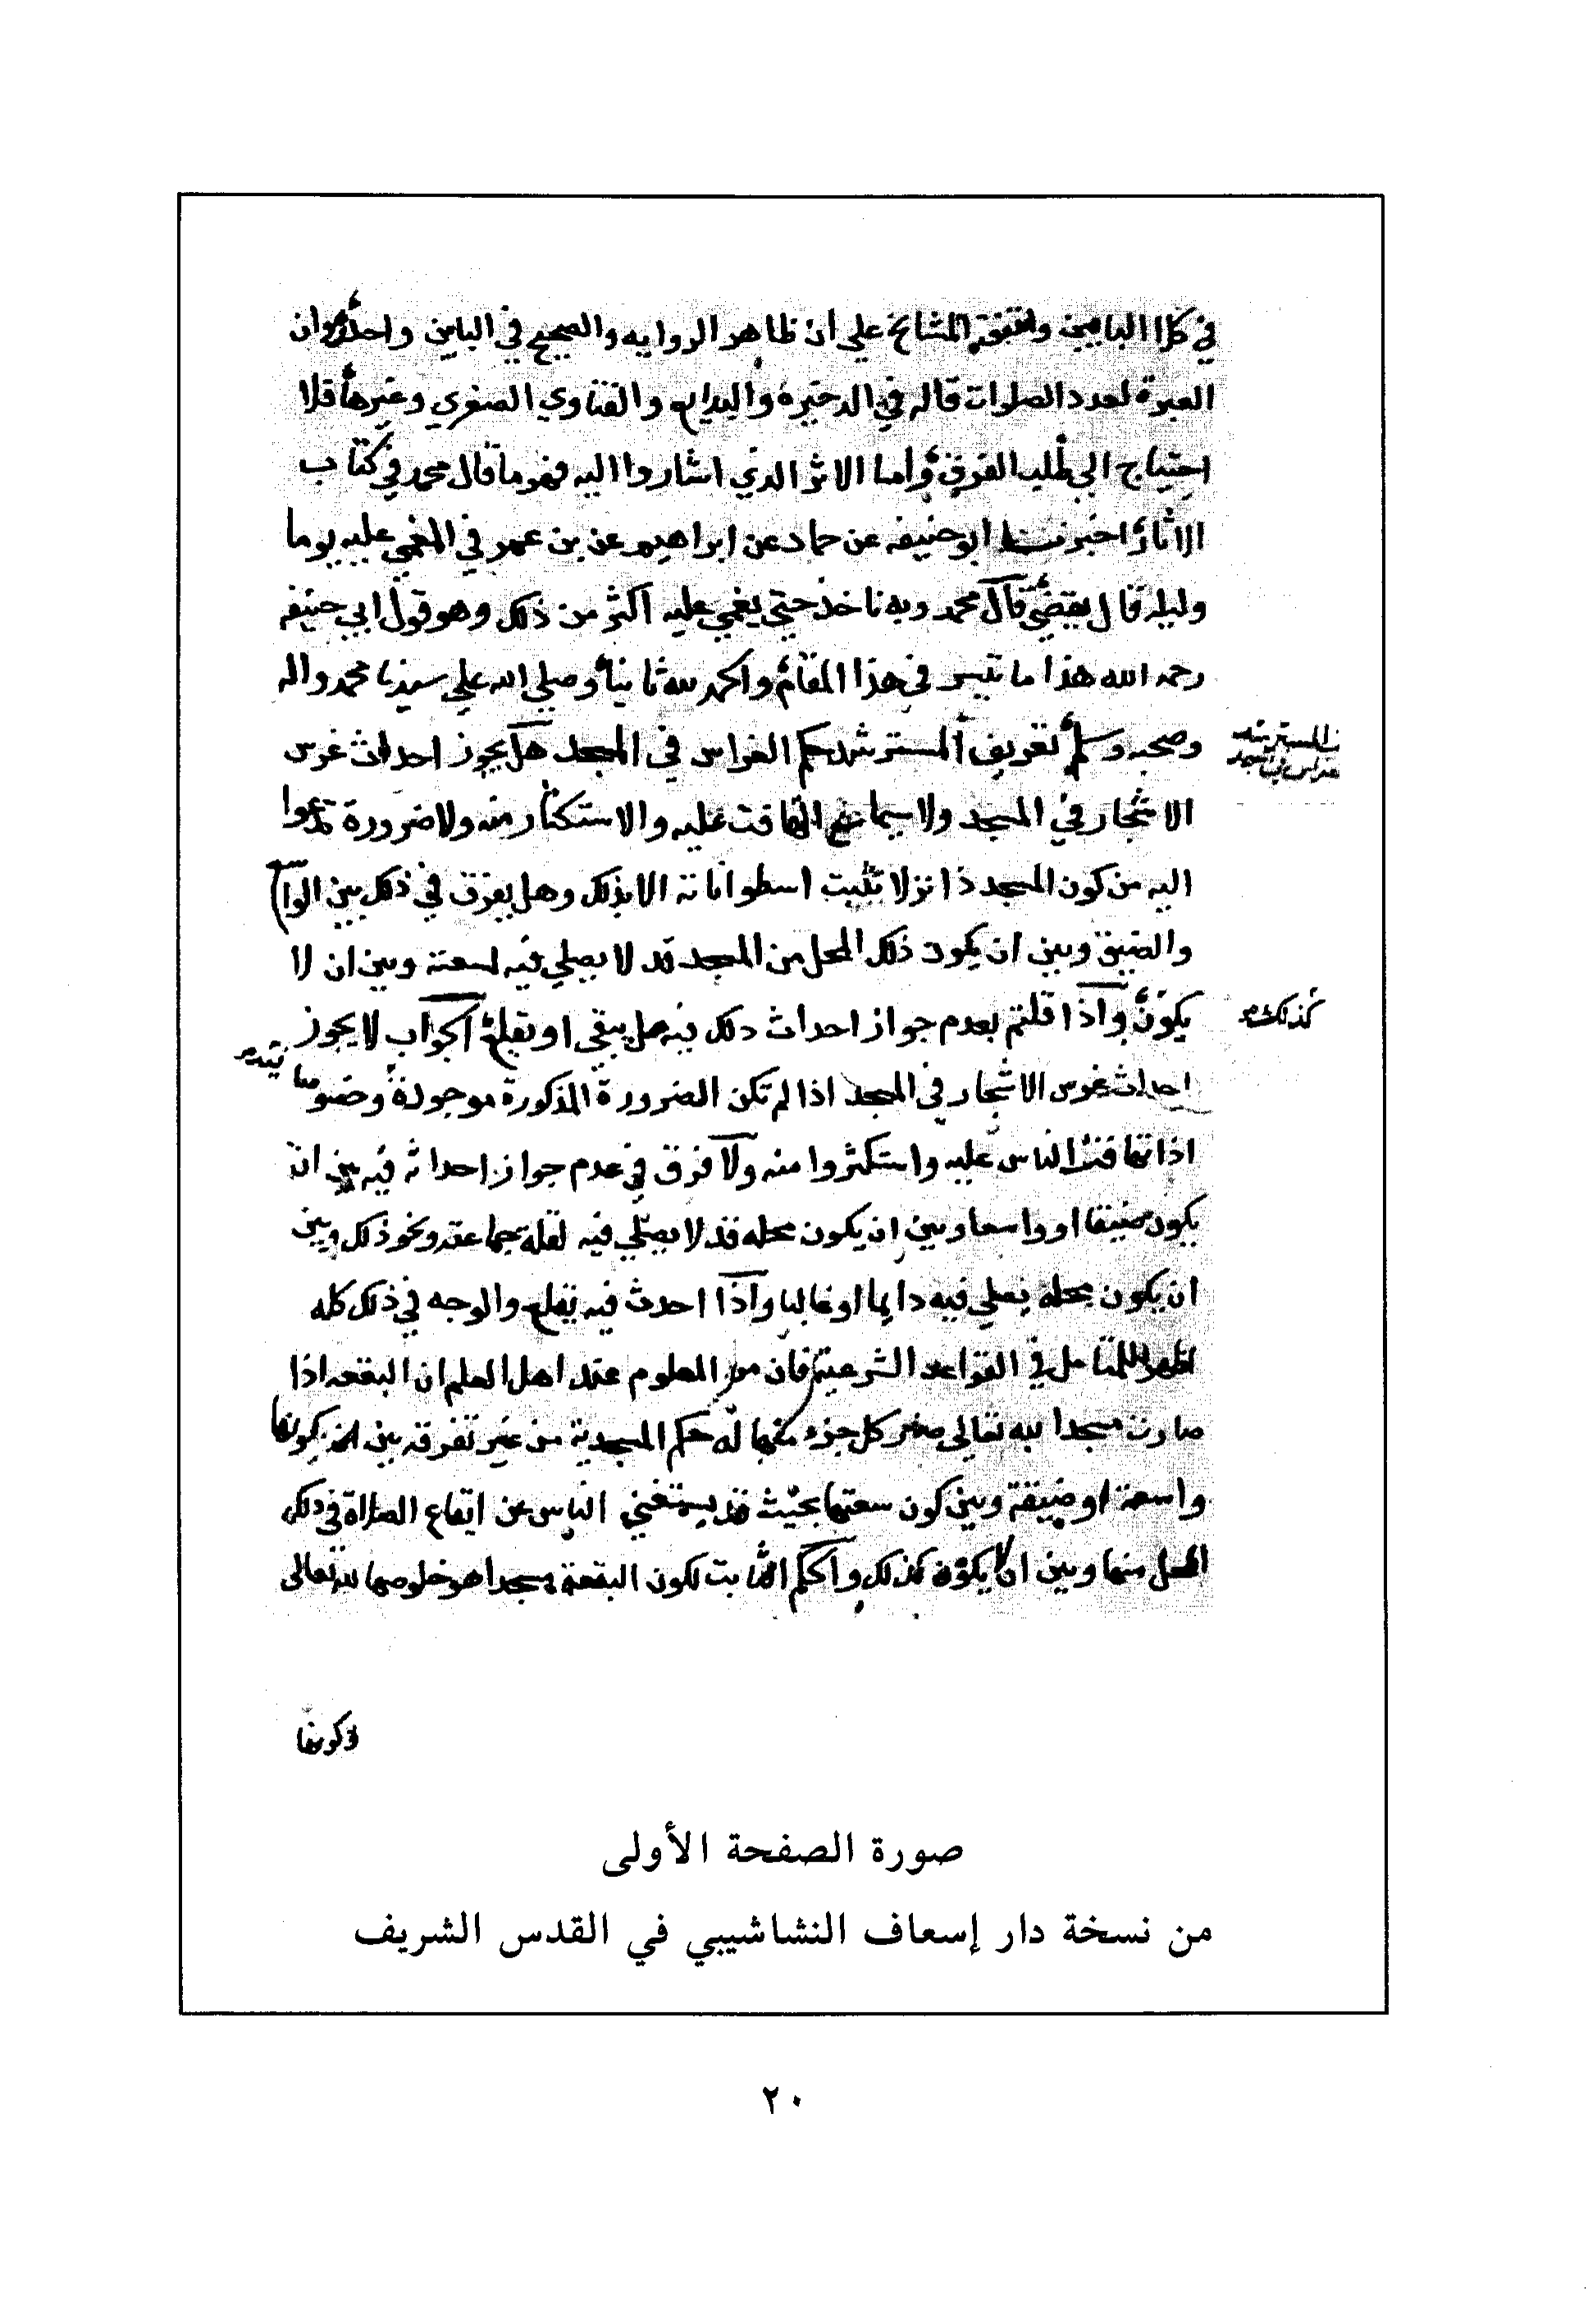 في كلا البابين واتفقت المشايخ على ان ظاهر الروايه والصحيح في البابين واحد وان
العبرة لعدد الصلوات قاله في الذخيرة والبدايع والفتاوي الصغري وغيرها فلا
احتياج الي طلب الفرق واما الاثر الذي اشاروا اليه فهو ما قال محمد في كتاب
الاثار اخبرنا ابو حنيفه عن حماد عن ابراهيم عن بن عمر في المغمي عليه يوما
وليلة قال يقضي قال محمد وبه ناخذ حتي يغمي عليه اكثر من ذلك وهو قول ابي حنيفه
رحمه الله هذا ما تيسر في هذا المقام والحمد لله ثانيا وصلي الله علي سيدنا محمد واله
وصحبه وسلم تعريف المسترشد حكم الغراس في المسجد هل يجوز احداث غرس
الاشجار في المسجد ولا سيما مع التهافت عليه والاستكثار منه ولا ضرورة تدعوا
اليه من كون المسجد ذا نز لا تثبت اسطواناته الا بذلك وهل يفرق في ذلك بين الواسع
والضيق وبين ان يكون ذلك المحل من المسجد قد لا يصلي فيه لسعته وبين ان لا
يكون واذا قلتم بعدم جواز احداث ذلك فيه هل يبقي او يقلع الجواب لا يجوز
كذلك
احداث غرس الاشجار في المسجد اذا لم تكن الضرورة المذكورة موجودة وخصوصا
اذا تهافت الناس عليه واستكثروا منه ولا فرق في عدم جواز احداثه فيه بين ان
يكون ضيقا او واسعا وبين ان يكون محله قد لا يصلي فيه لقلة جماعته ونحو ذلك وبين
ان يكون محله يصلي فيه دايما او غالبا واذا احدث فيه يقلع والوجه في ذلك كله
اظهر للمتامل في القواعد الشرعية فان من المعلوم عند اهل العلم ان البقعه اذا
صارت مسجدا لله تعالى صار كل جزء منها له حكم المسجدية من غير تفرقه بين كونها
واسعة او ضيقة وبين كون سعتها بحيث قد يستغني الناس عن ايقاع الصلاة في ذلك
المحل منها وبين ان لا يكون كذلك والحكم الثابت لكون البقعة مسجدا هو خلوصها لله تعالى
وكونها
صورة الصفحة الأولى
من نسخة دار إسعاف النشاشيبي في القدس الشريف
٢٠